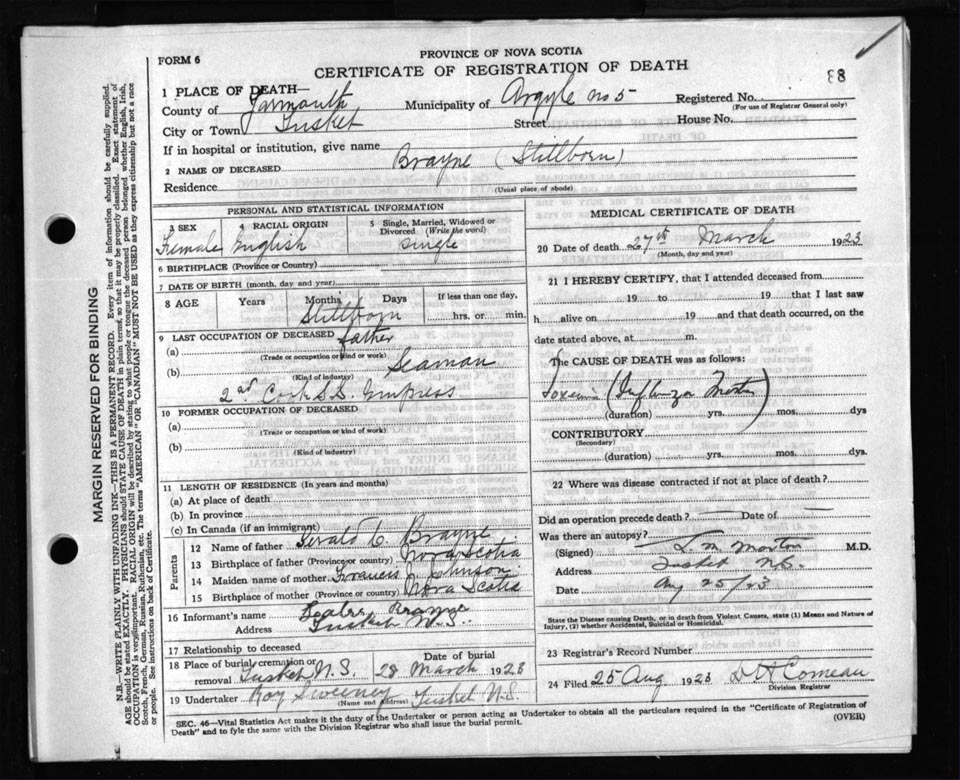 FORM 6
PROVINCE OF NOVA SCOTIA
CERTIFICATE OF REGISTRATION OF DEATH
88
1 PLACE OF DEATH—
County of Yarmouth Municipality of Argyle no 5 Registered No.
(For use of Registrar General only)
City or Town Tusket Street House No.
If in hospital or institution, give name
2 NAME OF DECEASED Brayne (Stillborn)
Residence
(Usual place of abode)
MARGIN RESERVED FOR BINDING
N.B.—WRITE PLAINLY WITH UNFADING INK—THIS IS A PERMANENT RECORD. Every item of information should be carefully supplied.
AGE should be stated EXACTLY. PHYSICIANS should STATE CAUSE OF DEATH in plain terms, so that it may be properly classified. Exact statement of
OCCUPATION is very important. RACIAL ORIGIN will be described by stating to what people or tongue the deceased person belonged whether English, Irish,
Scotch, French, German, Russian, Ruthenian, etc. The terms "AMERICAN" OR "CANADIAN" MUST NOT BE USED as they express citizenship but not a race
or people. See instructions on back of Certificate.
PERSONAL AND STATISTICAL INFORMATION
3 SEX
Female
4 RACIAL ORIGIN
English
5 Single, Married, Widowed or
Divorced (Write the word)
Single
6 BIRTHPLACE (Province or Country)
7 DATE OF BIRTH (month, day and year)
8 AGE Years Months Days If less than one day,
Stillborn hrs. or min.
9 LAST OCCUPATION OF DECEASED father
(a)
(Trade or occupation or kind or work)
(b) Seaman
(Kind of industry)
2nd Cook S.S. Empress
10 FORMER OCCUPATION OF DECEASED
(a)
(Trade or occupation or kind of work)
(b)
(Kind of industry)
11 LENGTH OF RESIDENCE (In years and months)
(a) At place of death
(b) In province
(c) In Canada (if an immigrant)
Parents
12 Name of father Gerald C. Brayne
13 Birthplace of father (Province or country) Nova Scotia
14 Maiden name of mother Francis Johnson
15 Birthplace of mother (Province or country) Nova Scotia
16 Informant's name Brayne
Address Tusket N.S.
17 Relationship to deceased
18 Place of burial, cremation or
removal Tusket N.S.
Date of burial
28 March 1923
19 Undertaker Roy Sweeney Tusket N.S.
(Name and Address)
MEDICAL CERTIFICATE OF DEATH
20 Date of death 27th March 1923
(Month, day and year)
21 I HEREBY CERTIFY, that I attended deceased from
19 to 19 that I last saw
h alive on 19 and that death occurred, on the
date stated above, at m.
The CAUSE OF DEATH was as follows:
Toxemia (Influenza Mother)
(duration) yrs. mos. dys
CONTRIBUTORY
(Secondary)
(duration) yrs. mos. dys.
22 Where was disease contracted if not at place of death?
Did an operation precede death? Date of
Was there an autopsy?
(Signed) L. M. Morton M.D.
Address Tusket N.S.
Date Aug 25/23
State the Disease causing Death, or in death from Violent Causes, state (1) Means and Nature of
Injury, (2) whether Accidental, Suicidal or Homicidal.
23 Registrar's Record Number
24 Filed 25 Aug 1923 D H Comeau
Division Registrar
SEC. 46—Vital Statistics Act makes it the duty of the Undertaker or person acting as Undertaker to obtain all the particulars required in the "Certificate of Registration of
Death" and to fyle the same with the Division Registrar who shall issue the burial permit.
(OVER)